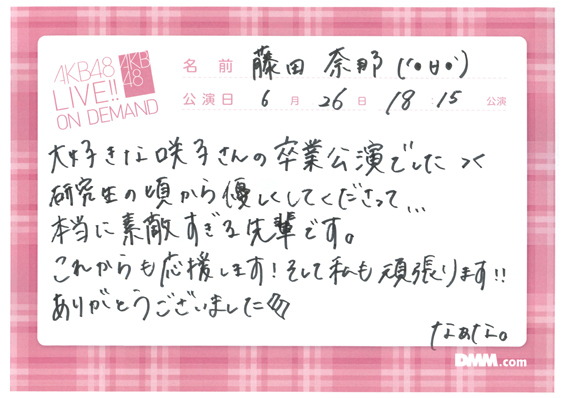 AKB48
LIVE!!
ON DEMAND
AKB
48
名前 藤田 奈那('◇'ゞ)
公演日 6月26日 18:15公演
大好きな咲子さんの卒業公演でした つく
研究生の頃から優しくしてくださって…
本当に素敵すぎる先輩です。
これからも応援します!そして私も頑張ります!!
ありがとうございました
なぁな。
DMM.com